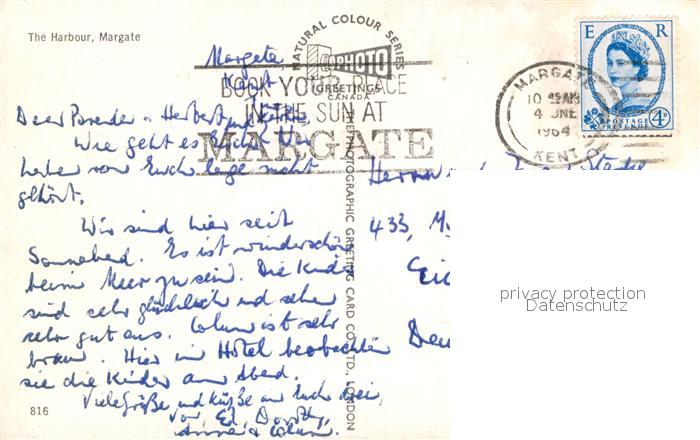 The Harbour, Margate
NATURAL COLOUR SERIES
PHOTO
GREETINGS
CANADA
BOOK YOUR PLACE
IN THE SUN AT
MARGATE
E R
POSTAGE
REVENUE
4D
MARGATE
10 AM
4 JNE
1964
KENT
Margate,
Kent
Dear Brenda + Herbert und
Wie geht es Euch? Wir
haben von Euch lange nicht
gehört.
Wir sind hier seit
Sonnabend. Es ist wunderschön
beim Meer zu sein. Die Kinder
sind sehr glücklich und sehen
sehr gut aus. Colum ist sehr
braun. Hier im Hotel beobachten
sie die Kinder am Abend.
Viele Grüße und Küße an Euch drei,
von Ed, Dorothy,
Colum.
Herrn
433,
PHOTOGRAPHIC GREETING CARD CO. LTD., LONDON
816
privacy protection
Datenschutz